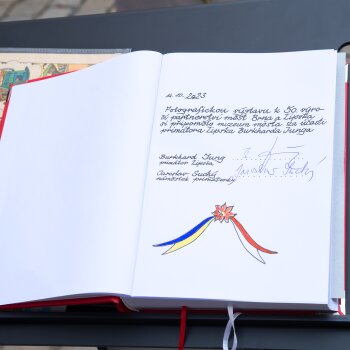 4. 10. 2023
Fotografickou výstavu k 50. výro-
čí partnerství měst Brna a Lipska
si připomělo muzeum města za účasti
primátora Lipska Burkharda Junga
Burkhard Jung
primátor Lipska
Jaroslav Suchý
náměstek primátorky
Jaroslav Suchý